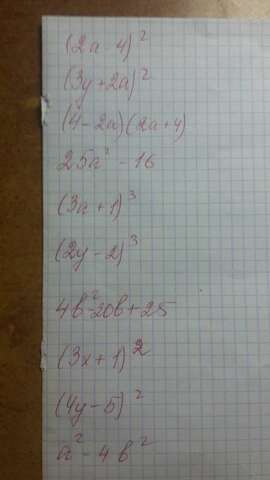 (2a-4)²
(3y+2a)²
(4-2a)(2a+4)
25a²-16
(3a+1)³
(2y-2)³
4b²-20b+25
(3x+1)²
(4y-5)²
a²-4b²